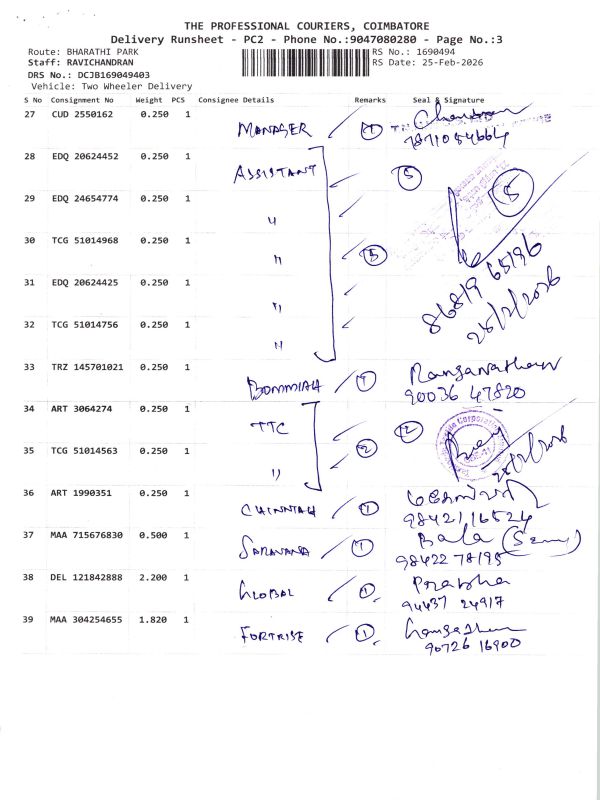 THE PROFESSIONAL COURIERS, COIMBATORE
Delivery Runsheet - PC2 - Phone No.:9047080280 - Page No.:3
Route: BHARATHI PARK
RS No.: 1690494
Staff: RAVICHANDRAN
RS Date: 25-Feb-2026
DRS No.: DCJB169049403
Vehicle: Two Wheeler Delivery
S No Consignment No Weight PCS Consignee Details Remarks Seal & Signature
27 CUD 2550162 0.250 1 MANAGER 1
28 EDQ 20624452 0.250 1 ASSISTANT 5 5
29 EDQ 24654774 0.250 1 "
30 TCG 51014968 0.250 1 " 5
86819 65196
25/2/2026
31 EDQ 20624425 0.250 1 "
32 TCG 51014756 0.250 1 "
33 TRZ 145701021 0.250 1 BOMMIAH 1 Ranganathan
90036 47820
34 ART 3064274 0.250 1 TTC 2
35 TCG 51014563 0.250 1 " 2 25/2/2026
36 ART 1990351 0.250 1 CHINNIAH 1
98421 16524
37 MAA 715676830 0.500 1 SARAVANA 1 Bala
98422 78195
38 DEL 121842888 2.200 1 GLOBAL 1 Prabha
94437 24917
39 MAA 304254655 1.820 1 FORTRISE 1
90726 16900